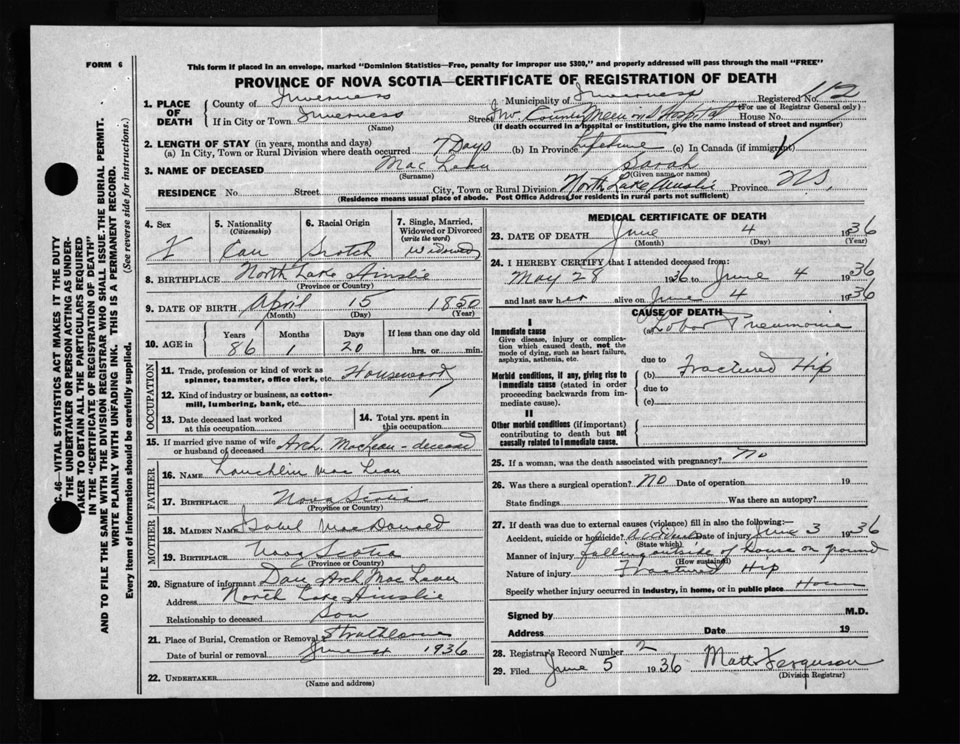 FORM 6
This form if placed in an envelope, marked "Dominion Statistics—Free, penalty for improper use $300," and properly addressed will pass through the mail "FREE"
PROVINCE OF NOVA SCOTIA—CERTIFICATE OF REGISTRATION OF DEATH
1. PLACE OF DEATH
County of Inverness Municipality of Inverness Registered No. 112
(For use of Registrar General only)
If in City or Town Inverness Street Inv. County Memorial Hospital House No.
(Name) (If death occurred in a hospital or institution, give the name instead of street and number)
2. LENGTH OF STAY (in years, months and days)
(a) In City, Town or Rural Division where death occurred 7 Days (b) In Province Lifetime (c) In Canada (if immigrant)
3. NAME OF DECEASED Mac Lean Sarah
(Surname) (Given name or names)
RESIDENCE No. Street City, Town or Rural Division North Lake Ainslie Province N.S.
(Residence means usual place of abode. Post Office Address for residents in rural parts not sufficient)
4. Sex F
5. Nationality (Citizenship) Can
6. Racial Origin Scotch
7. Single, Married, Widowed or Divorced (write the word) Widowed
8. BIRTHPLACE North Lake Ainslie
(Province or Country)
9. DATE OF BIRTH April 15 1850
(Month) (Day) (Year)
10. AGE in Years 86 Months 1 Days 20 If less than one day old hrs. or min.
OCCUPATION
11. Trade, profession or kind of work as spinner, teamster, office clerk, etc.
12. Kind of industry or business, as cotton-mill, lumbering, bank, etc.
13. Date deceased last worked at this occupation
14. Total yrs. spent in this occupation
15. If married give name of wife or husband of deceased Arch. MacLean - deceased
FATHER
16. NAME Lauchlin Mac Lean
17. BIRTHPLACE Nova Scotia
(Province or Country)
MOTHER
18. MAIDEN NAME Isabel MacDonald
19. BIRTHPLACE Nova Scotia
(Province or Country)
20. Signature of informant Dan Arch. Mac Lean
Address North Lake Ainslie
Relationship to deceased Son
21. Place of Burial, Cremation or Removal Strathlorne
Date of burial or removal June 1936
22. UNDERTAKER
(Name and Address)
MEDICAL CERTIFICATE OF DEATH
23. DATE OF DEATH June 4 1936
(Month) (Day) (Year)
24. I HEREBY CERTIFY that I attended deceased from:
May 28 1936 to June 4 1936
and last saw her alive on June 4 1936
CAUSE OF DEATH
I
Immediate cause
Give disease, injury or complication which caused death, not the mode of dying, such as heart failure, asphyxia, asthenia, etc.
(a) Lobar Pneumonia
due to
Morbid conditions, if any, giving rise to immediate cause (stated in order proceeding backwards from immediate cause).
(b) Fractured Hip
due to
(c)
II
Other morbid conditions (if important) contributing to death but not causally related to immediate cause.
25. If a woman, was the death associated with pregnancy? No
26. Was there a surgical operation? No Date of operation 19
State findings Was there an autopsy?
27. If death was due to external causes (violence) fill in also the following:—
Accident, suicide or homicide? Accident Date of injury June 3 1936
(State which)
Manner of injury falling outside of house on ground
(How sustained)
Nature of injury Fractured Hip
Specify whether injury occurred in industry, in home, or in public place Home
Signed by M.D.
Address Date 19
28. Registrar's Record Number 2
29. Filed June 5 1936 Matt Ferguson
(Division Registrar)
C. 46—VITAL STATISTICS ACT MAKES IT THE DUTY
THE UNDERTAKER OR PERSON ACTING AS UNDER-
TAKER TO OBTAIN ALL THE PARTICULARS REQUIRED
IN THE "CERTIFICATE OF REGISTRATION OF DEATH"
AND TO FILE THE SAME WITH THE DIVISION REGISTRAR WHO SHALL ISSUE THE BURIAL PERMIT.
WRITE PLAINLY WITH UNFADING INK. THIS IS A PERMANENT RECORD.
Every item of information should be carefully supplied. (See reverse side for instructions.)